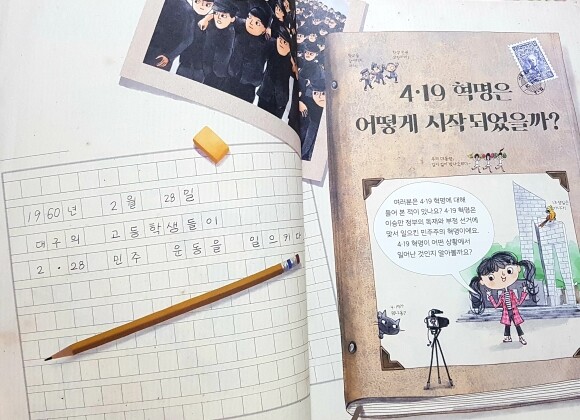 1960년 2월 28일
대구의 고등학생들이
2·28 민주 운동을 일으키다
4·19 혁명은
어떻게 시작되었을까?
여러분은 4·19 혁명에 대해
들어 본 적이 있나요? 4·19 혁명은
이승만 정부의 독재와 부정 선거에
맞서 일으킨 민주주의 혁명이에요.
4·19 혁명이 어떤 상황에서
일어난 것인지 알아볼까요?